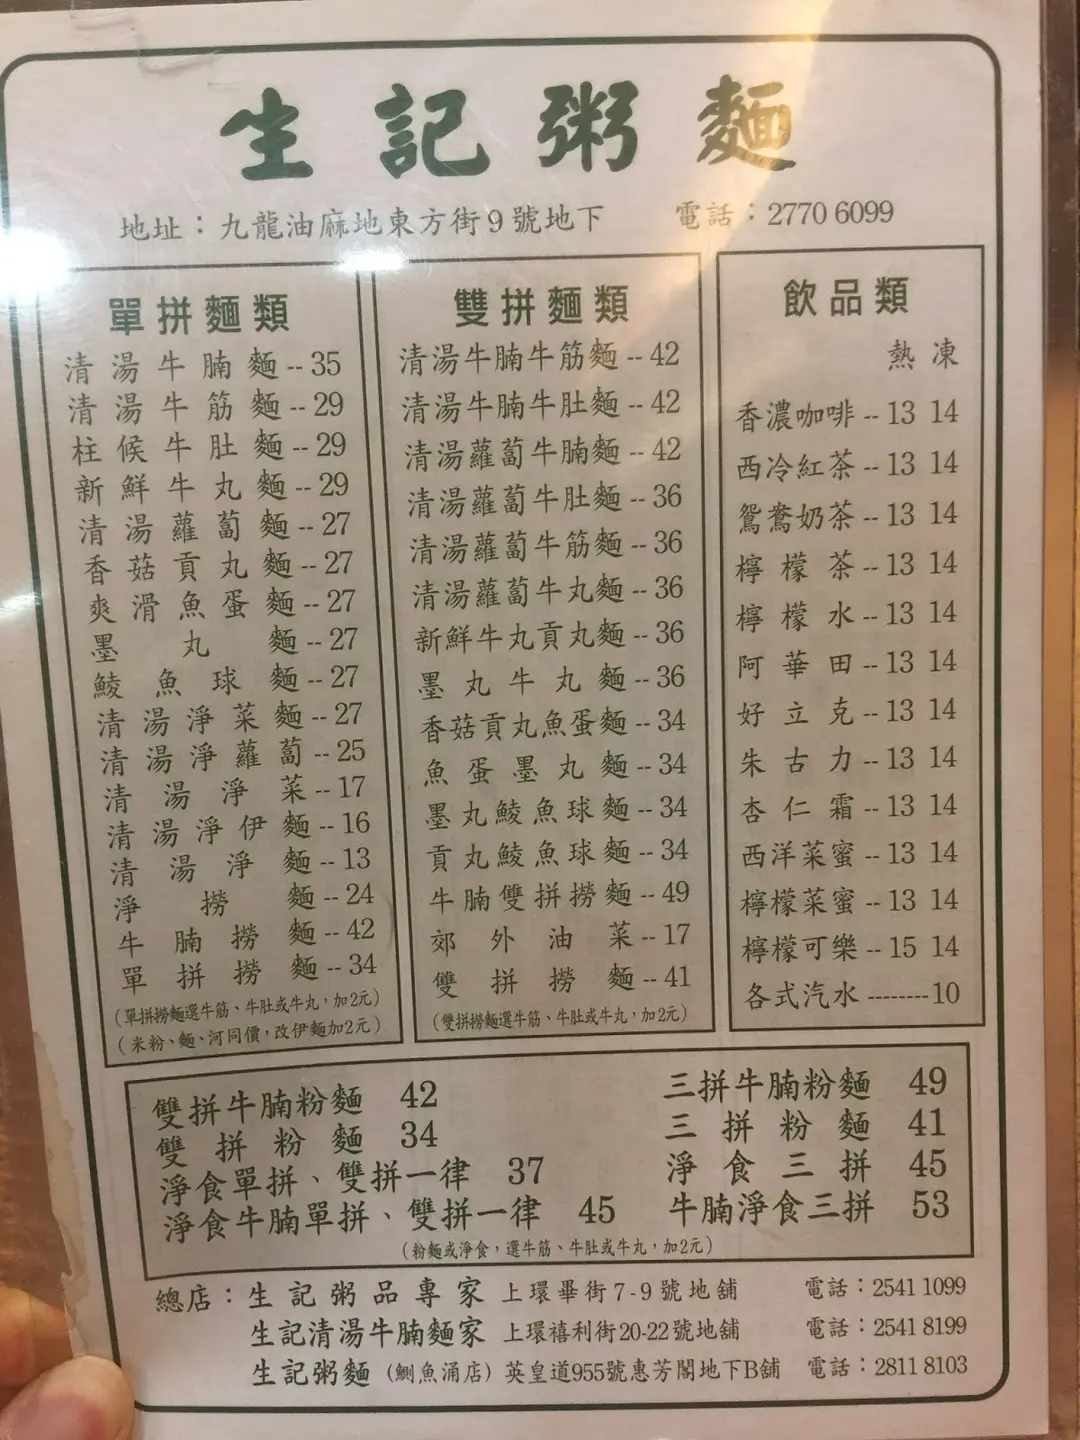 生記粥麵
地址：九龍油麻地東方街9號地下 電話：2770 6099
單拼麵類
清湯牛腩麵--35
清湯牛筋麵--29
柱候牛肚麵--29
新鮮牛丸麵--29
清湯蘿蔔麵--27
香菇貢丸麵--27
爽滑魚蛋麵--27
墨丸麵--27
鯪魚球麵--27
清湯淨菜麵--27
清湯淨蘿蔔--25
清湯淨菜--17
清湯淨伊麵--16
清湯淨麵--13
淨撈麵--24
牛腩撈麵--42
單拼撈麵--34
(單拼撈麵選牛筋、牛肚或牛丸，加2元)
(米粉、麵、河同價，改伊麵加2元)
雙拼麵類
清湯牛腩牛筋麵--42
清湯牛腩牛肚麵--42
清湯蘿蔔牛腩麵--42
清湯蘿蔔牛肚麵--36
清湯蘿蔔牛筋麵--36
清湯蘿蔔牛丸麵--36
新鮮牛丸貢丸麵--36
墨丸牛丸麵--36
香菇貢丸魚蛋麵--34
魚蛋墨丸麵--34
墨丸鯪魚球麵--34
貢丸鯪魚球麵--34
牛腩雙拼撈麵--49
郊外油菜--17
雙拼撈麵--41
(雙拼撈麵選牛筋、牛肚或牛丸，加2元)
飲品類
熱 凍
香濃咖啡--13 14
西冷紅茶--13 14
鴛鴦奶茶--13 14
檸檬茶--13 14
檸檬水--13 14
阿華田--13 14
好立克--13 14
朱古力--13 14
杏仁霜--13 14
西洋菜蜜--13 14
檸檬菜蜜--13 14
檸檬可樂--15 14
各式汽水--------10
雙拼牛腩粉麵 42
雙拼粉麵 34
淨食單拼、雙拼一律 37
淨食牛腩單拼、雙拼一律 45
三拼牛腩粉麵 49
三拼粉麵 41
淨食三拼 45
牛腩淨食三拼 53
(粉麵或淨食，選牛筋、牛肚或牛丸，加2元)
總店：生記粥品專家 上環畢街7-9號地舖 電話：2541 1099
生記清湯牛腩麵家 上環禧利街20-22號地舖 電話：2541 8199
生記粥麵 (鰂魚涌店) 英皇道955號惠芳閣地下B舖 電話：2811 8103